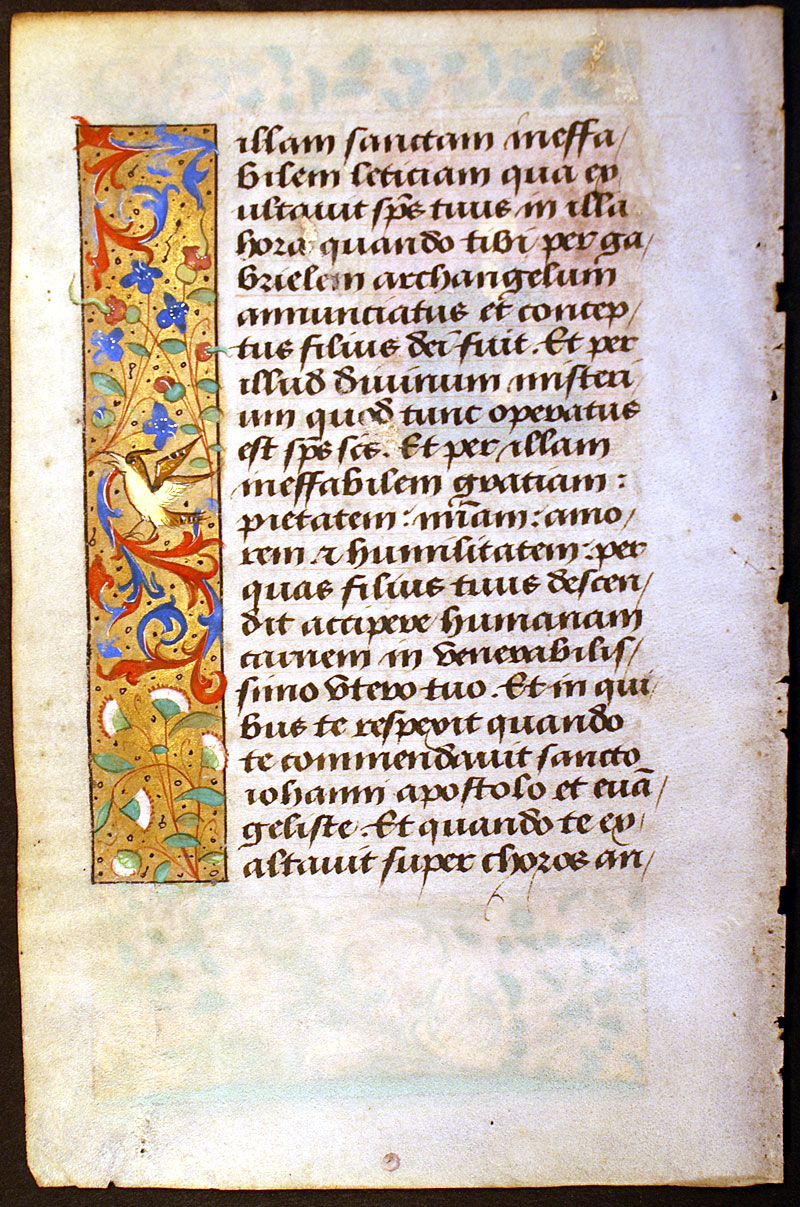 illam sanctam ineffa/
bilem leticiam qua ex
ultauit sp̄s tuus in illa
hora quando tibi per ga/
brielem archangelum
annunciatus et concep/
tus filius dei fuit. Et per
illud diuinum misteri/
um quod tunc operatus
est sp̄s scs. Et per illam
ineffabilem gratiam:
pietatem: mīam: amo/
rem ⁊ humilitatem: per
quas filius tuus descen/
dit accipere humanam
carnem in venerabilis/
simo vtero tuo. Et in qui/
bus te respexit quando
te commendauit sancto
iohanni apostolo et euā/
geliste. Et quando te ex/
altauit super choros an/